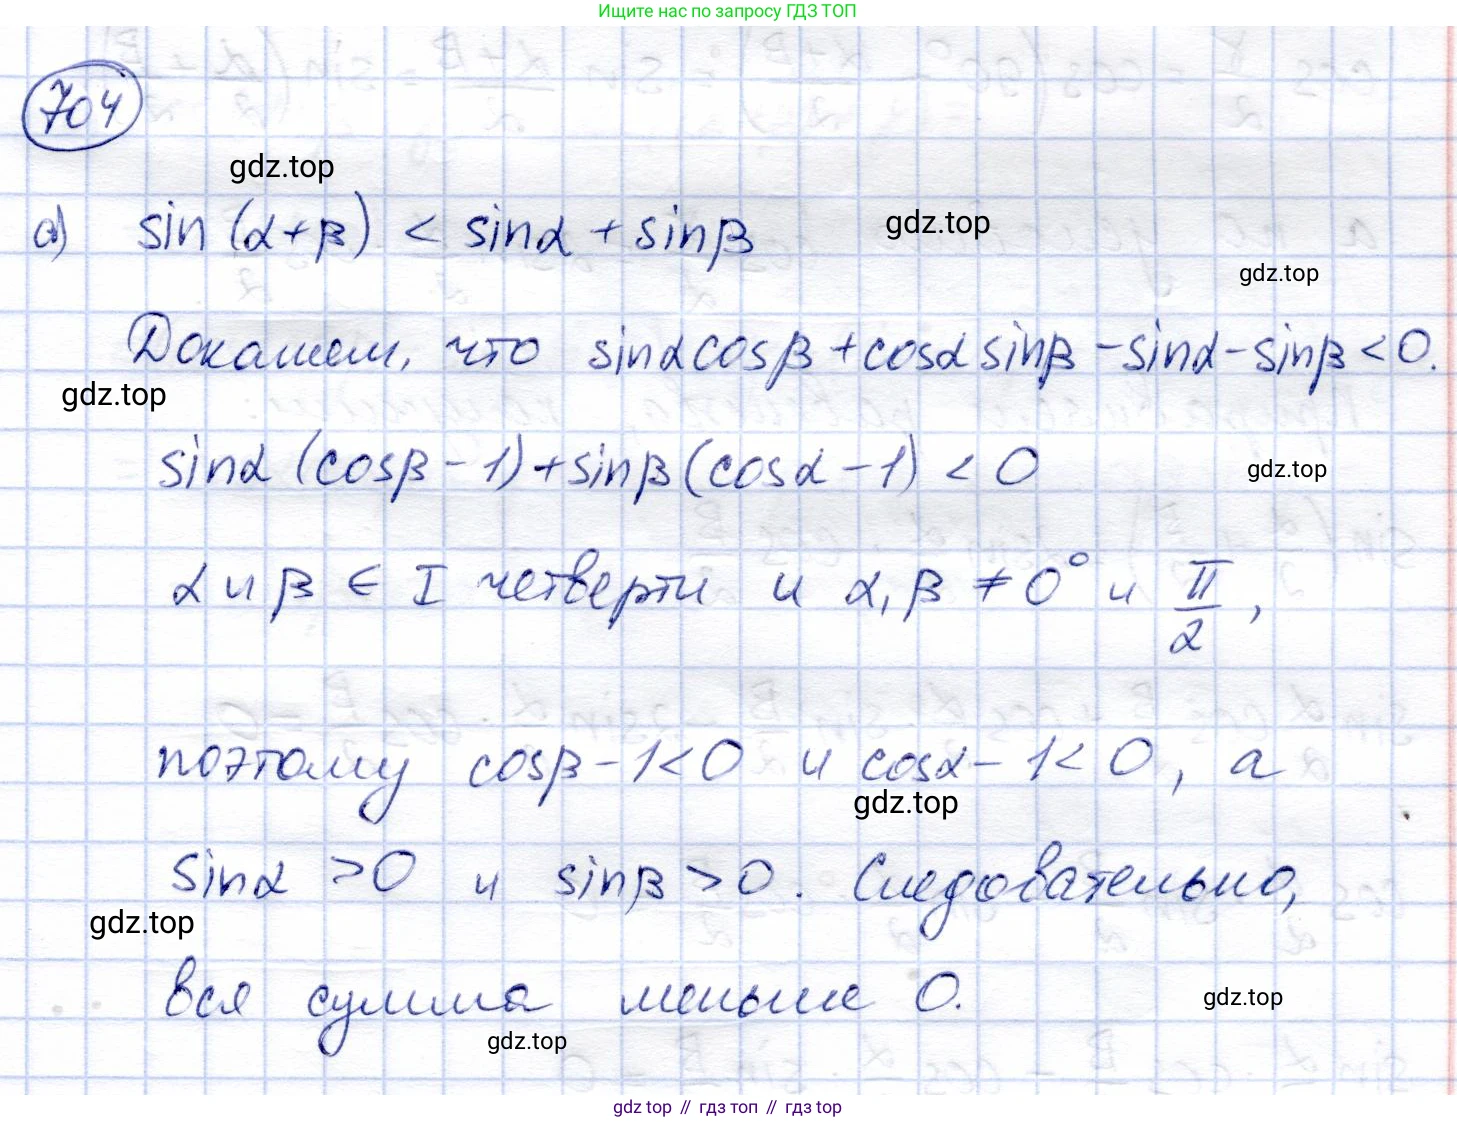 Ищите нас по запросу ГДЗ ТОП
704
gdz.top
а) sin(α+β) < sinα + sinβ
gdz.top
gdz.top
Докажем, что sinαcosβ+cosαsinβ-sinα-sinβ<0.
gdz.top
sinα(cosβ-1)+sinβ(cosα-1)<0
gdz.top
α и β ∈ I четверти и α,β ≠ 0° и π/2,
поэтому cosβ-1<0 и cosα-1<0, а
gdz.top
sinα >0 и sinβ>0. Следовательно,
gdz.top
вся сумма меньше 0.
gdz.top
gdz.top
gdz top // гдз топ // гдз top